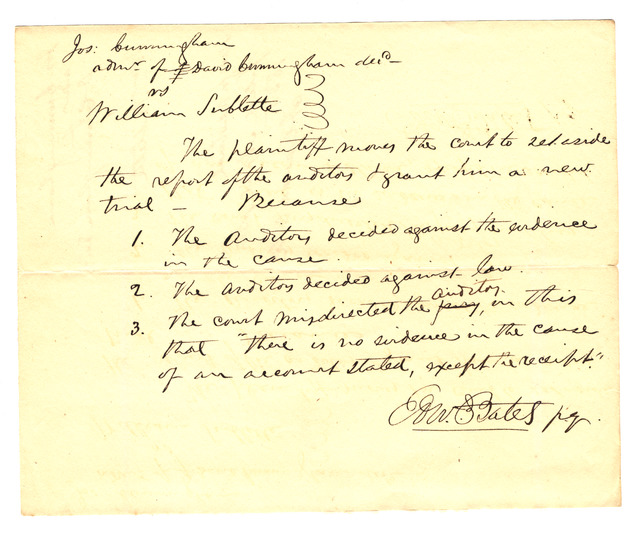 Jos: Cunningham
admr. of J David Cunningham decd
vs
William Sublette
The plaintiff moves the court to set aside
the report of the auditors & grant him a new
trial – Because
1. The Auditors decided against the evidence
in the cause.
2. The auditors decided against law.
3. The court misdirected the jury auditors, in this
that "there is no evidence in the cause
of an account stated, except the receipt."
Edw. Bates p.q.